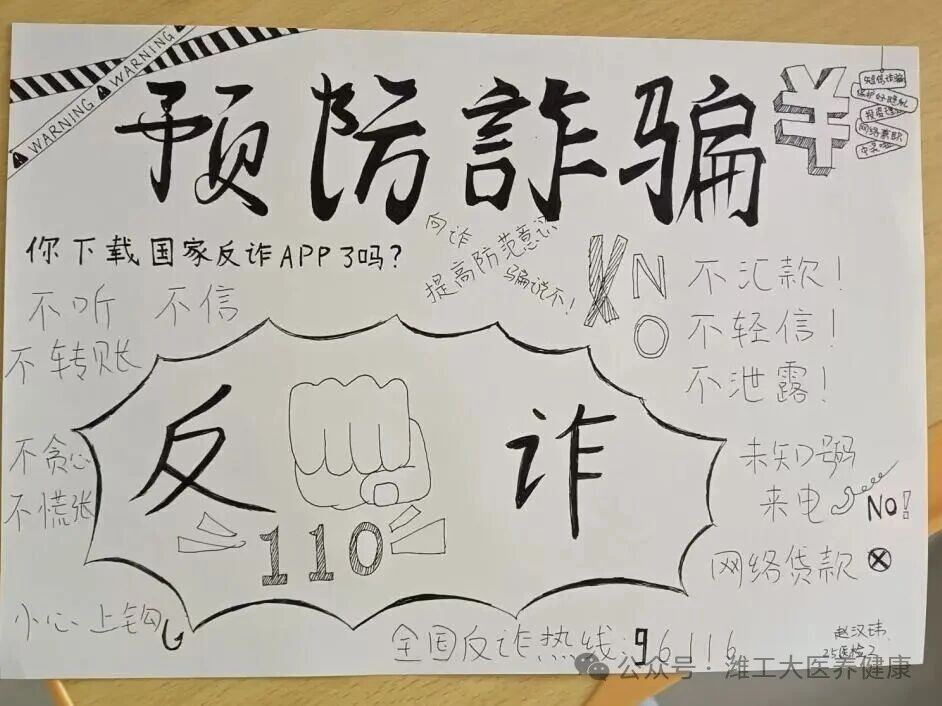 WARNING WARNING WARNING
预防诈骗
¥
短信诈骗
保护好隐私
网络兼职
你下载国家反诈APP了吗?
向诈
提高防范意识
骗说不!
不听 不信
不转账
不贪心
不慌张
小心上钩
X NO
不汇款!
不轻信!
不泄露!
未知号码
来电 NO!
网络贷款
反诈
110
全国反诈热线:96116
赵汉玮
25医检2
公众号·潍工大医养健康